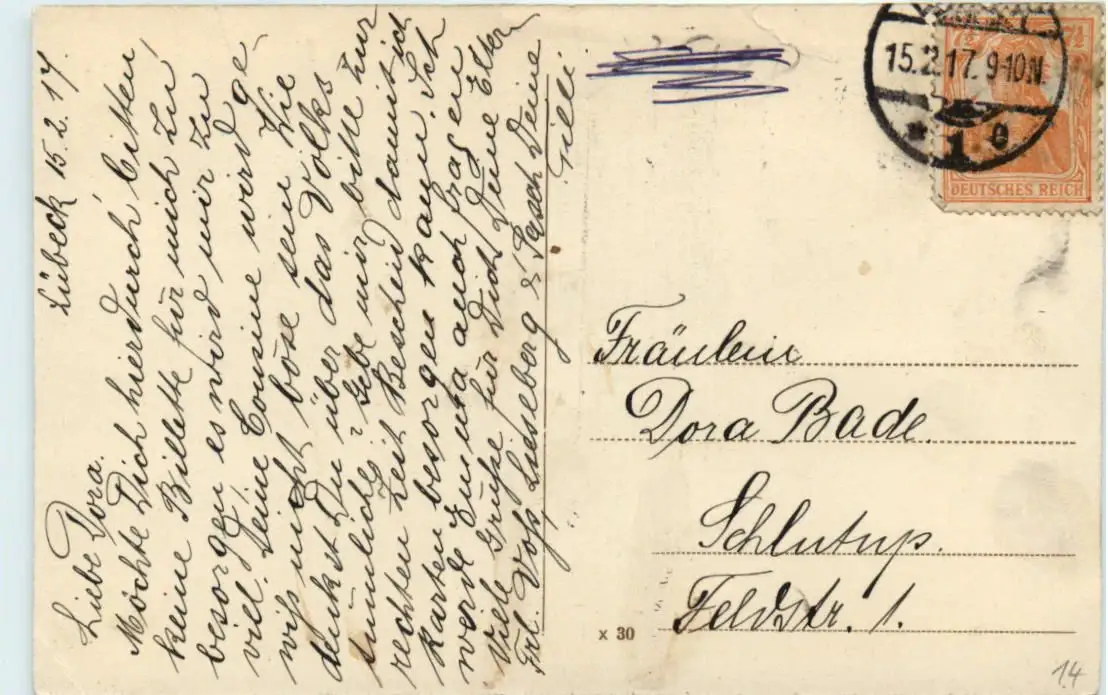 Lübeck 15.2.17.
Liebe Dora.
Möchte Dich hierdurch bitten
keine Billette für mich zu
besorgen es wird mir zu
viel. Deine Cousine wird ge-
wiß nicht böse sein. Wie
denkst Du über das Volks
tümliche? Gebe mir bitte zur
rechten Zeit Bescheid damit ich
Karten besorgen kann. Ich
werde Emma auch fragen
Viele Grüße für Dich Deine Eltern
Frl. Voß, Lieseberg & Deine
Tilli
15.2.17. 9-10N.
* 1 e
7½ 7½
DEUTSCHES REICH
Fräulein
Dora Bade.
Schlutup.
Feldstr. 1.
x 30
14